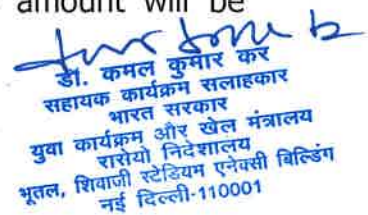 amount will be
डॉ. कमल कुमार कर
सहायक कार्यक्रम सलाहकार
भारत सरकार
युवा कार्यक्रम और खेल मंत्रालय
रासेयो निदेशालय
भूतल, शिवाजी स्टेडियम एनेक्सी बिल्डिंग
नई दिल्ली-110001